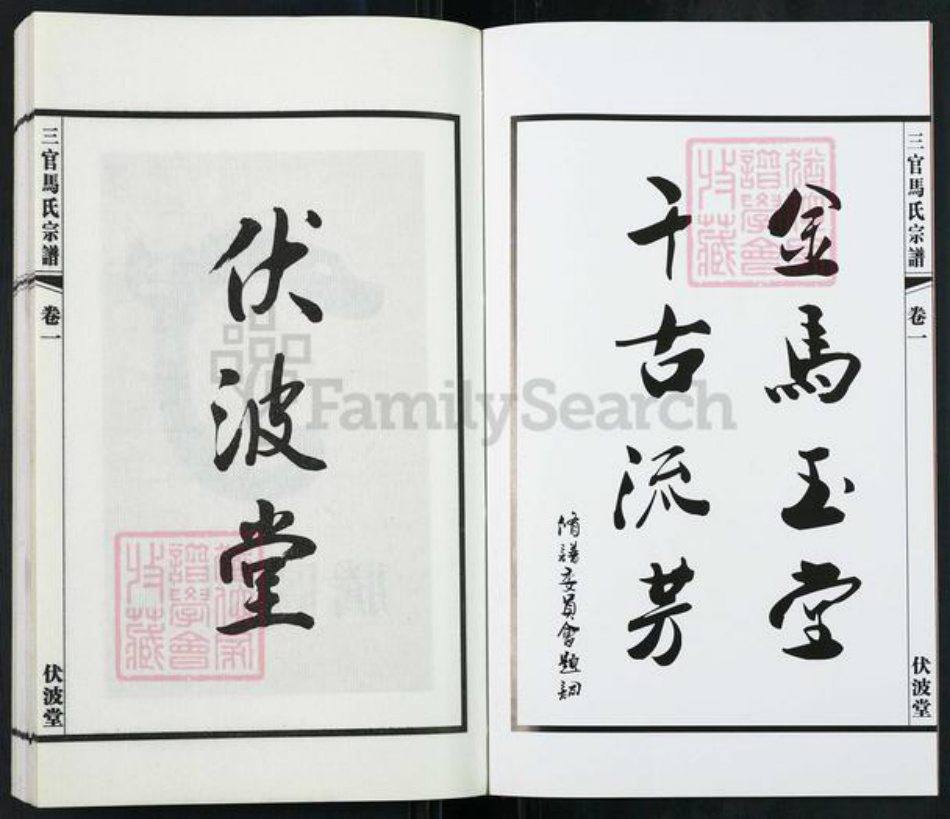 三官馬氏宗譜
卷一
伏波堂
金馬玉堂
千古流芳
脩譜委員會題詞
伏波堂
三官馬氏宗譜
卷一
伏波堂
譜學會
收藏
譜學會
收藏
FamilySearch